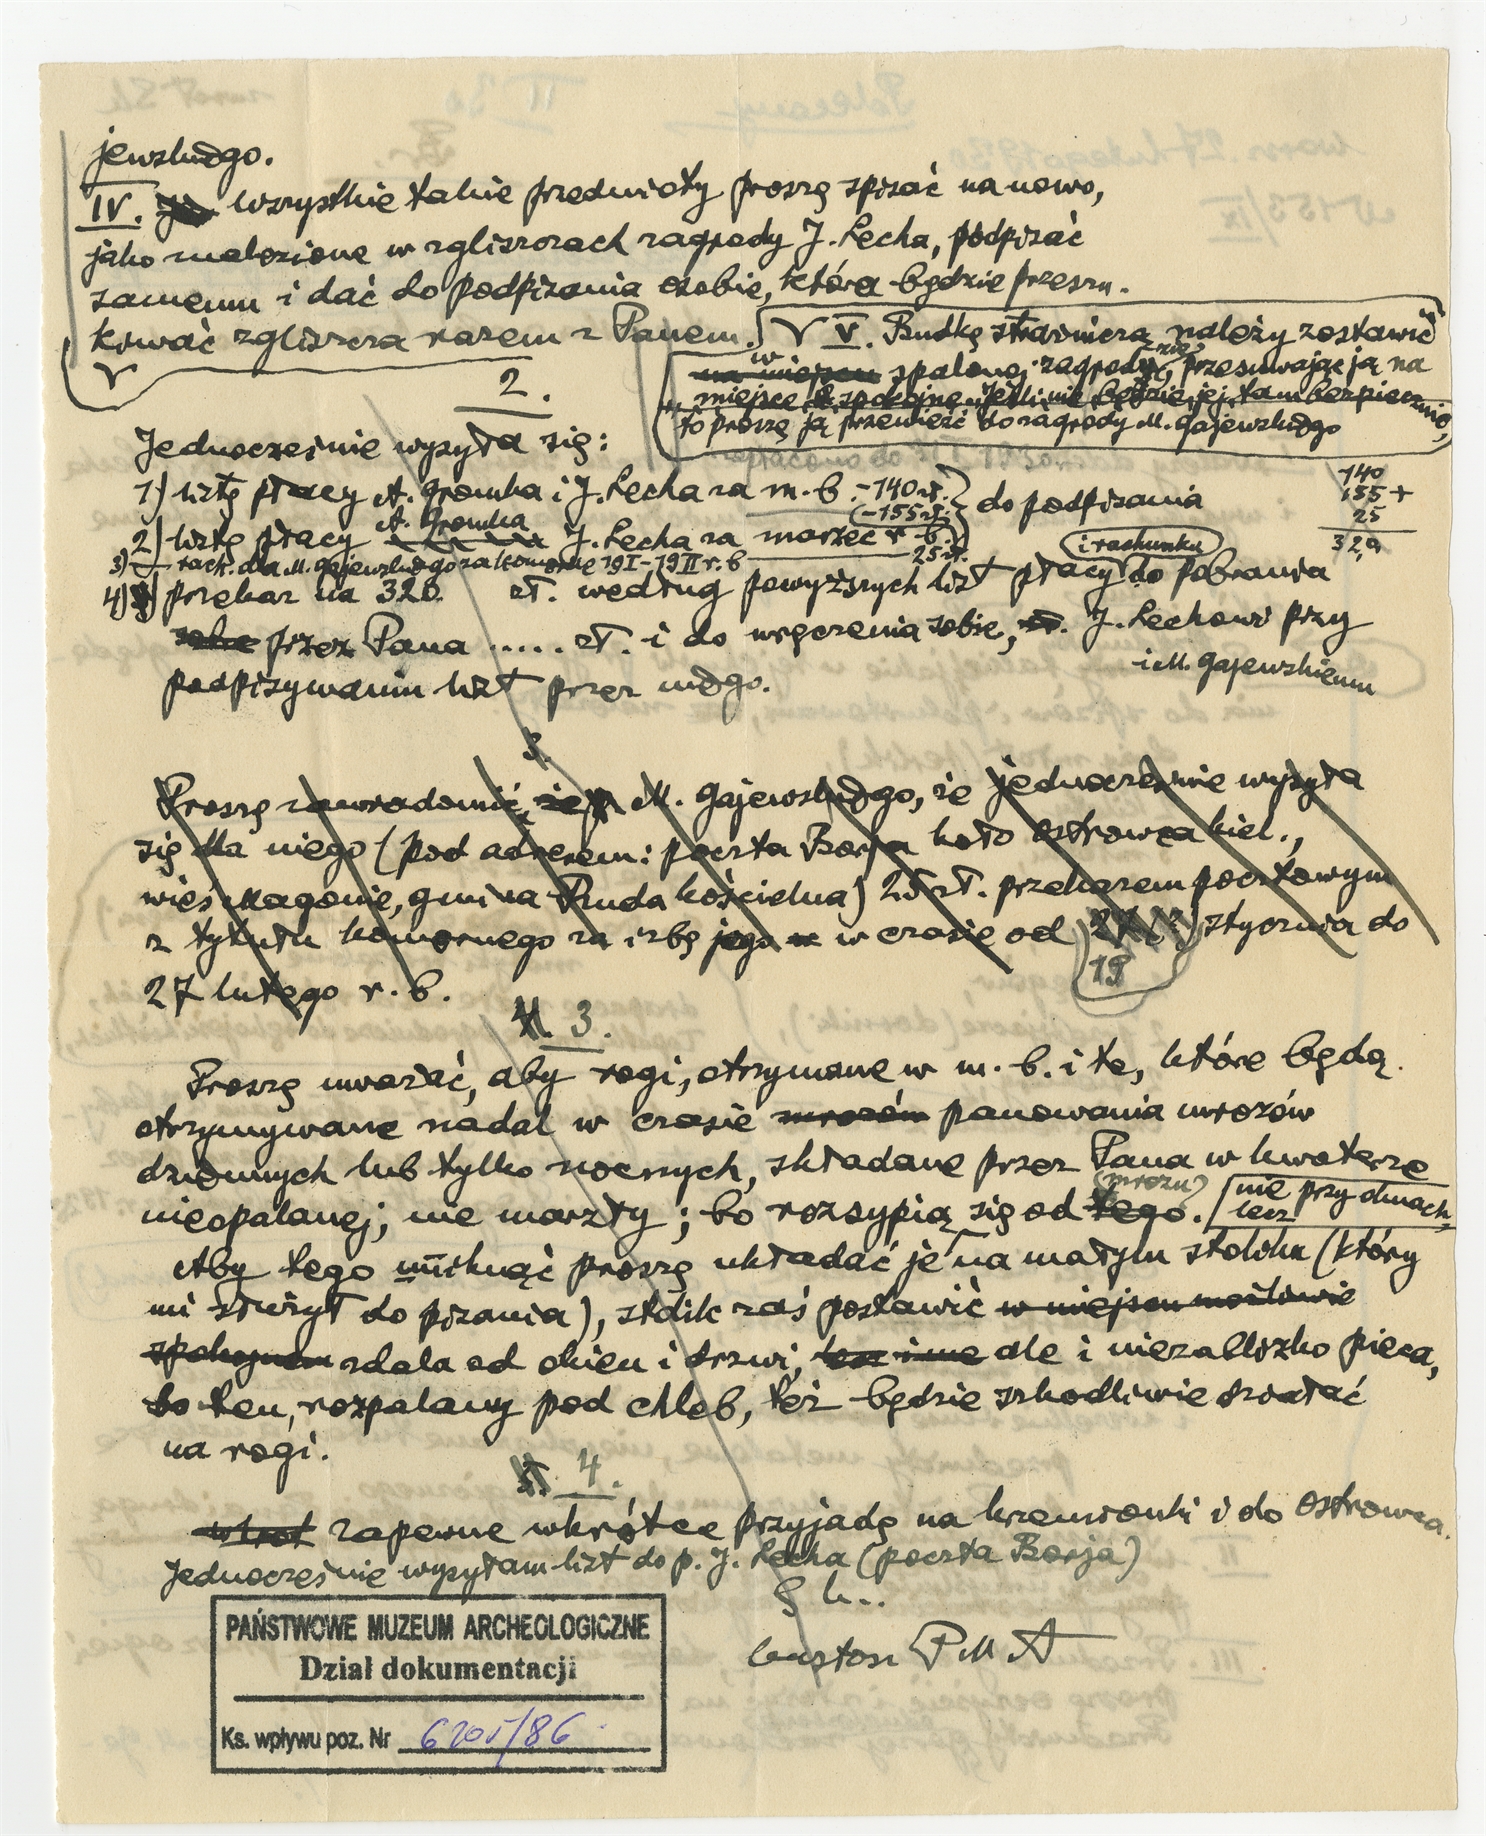 jewskiego.
IV. wszystkie takie przedmioty proszę spisać na nowo,
jako znalezione w zgliszczach zagrody J. Lecha, podpisać
samemu i dać do podpisania osobie, która będzie przeszu-
kiwać zgliszcza razem z Panem.
V. Budkę strażniczą należy zostawić
na miejscu w spalonej zagrodzie, przesuwając ją na
miejsce spokojne. Jeśli nie będzie jej tam bezpiecznie,
to proszę ją przewieźć do zagrody M. Gajewskiego
2.
Jednocześnie wysyła się:
1) listę płacy A. Gromka i J. Lecha za m. b. -140 zł.
-155 zł. } do podpisania
2) listę płacy A. Gromka J. Lecha za marzec r. b.
3) rach. dla M. Gajewskiego za komorne 19 I - 19 II r. b 25 zł.
140
155 +
25
320
4) przekaz na 320 zł. według powyższych list płacy i rachunku do pobrania
przez Pana ..... zł. i do wręczenia sobie, J. Lechowi przy
i M. Gajewskiemu
podpisywaniu list przez niego.
3.
Proszę zawiadomić, że M. Gajewskiego, że jednocześnie wysyła
się dla niego (pod adresem: poczta Borja koło Ostrowca kiel.,
wieś Magonie, gmina Ruda Kościelna) 25 zł. przekazem pocztowym
z tytułu komornego za izbę jego w czasie od 27 (?) stycznia do
19
27 lutego r. b.
3.
Proszę uważać, aby rogi, otrzymane w m. b. i te, które będą
otrzymywane nadal w czasie mrozów panowania mrozów
dziennych lub tylko nocnych, składane przez Pana w kwaterze
nieopalanej, nie marzły; bo rozsypią się od tego (mrozu).
Aby tego uniknąć proszę układać je nie przy oknach, lecz na małym stoliku (który
mi służył do pisania), stolik zaś postawić w miejscu możliwie
spokojnem zdala od okien i drzwi, ale i niezablisko pieca,
bo ten, rozpalany pod chleb, też będzie szkodliwie działać
na rogi.
4.
Zapewne wkrótce przyjadę na krzemionki i do Ostrowca.
Jednocześnie wysyłam list do p. J. Lecha (poczta Borja)
kustosz PMA
PAŃSTWOWE MUZEUM ARCHEOLOGICZNE
Dział dokumentacji
Ks. wpływu poz. Nr 6205/86